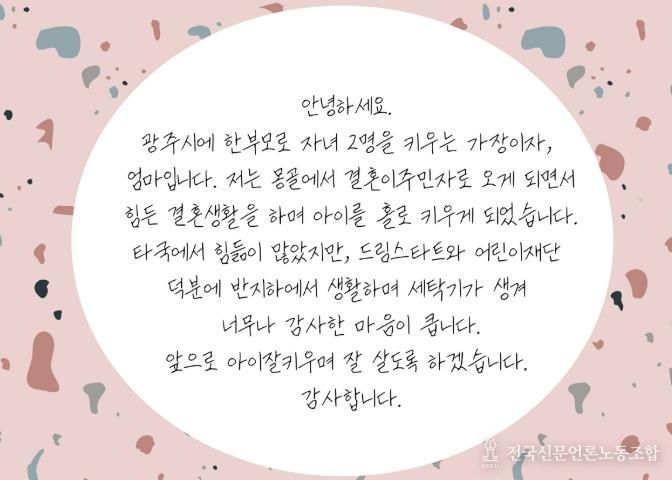 안녕하세요.
광주시에 한부모로 자녀 2명을 키우는 가장이자,
엄마입니다. 저는 몽골에서 결혼이주민자로 오게 되면서
힘든 결혼생활을 하며 아이를 홀로 키우게 되었습니다.
타국에서 힘듦이 많았지만, 드림스타트와 어린이재단
덕분에 반지하에서 생활하며 세탁기가 생겨
너무나 감사한 마음이 큽니다.
앞으로 아이잘키우며 잘 살도록 하겠습니다.
감사합니다.
전국신문언론노동조합